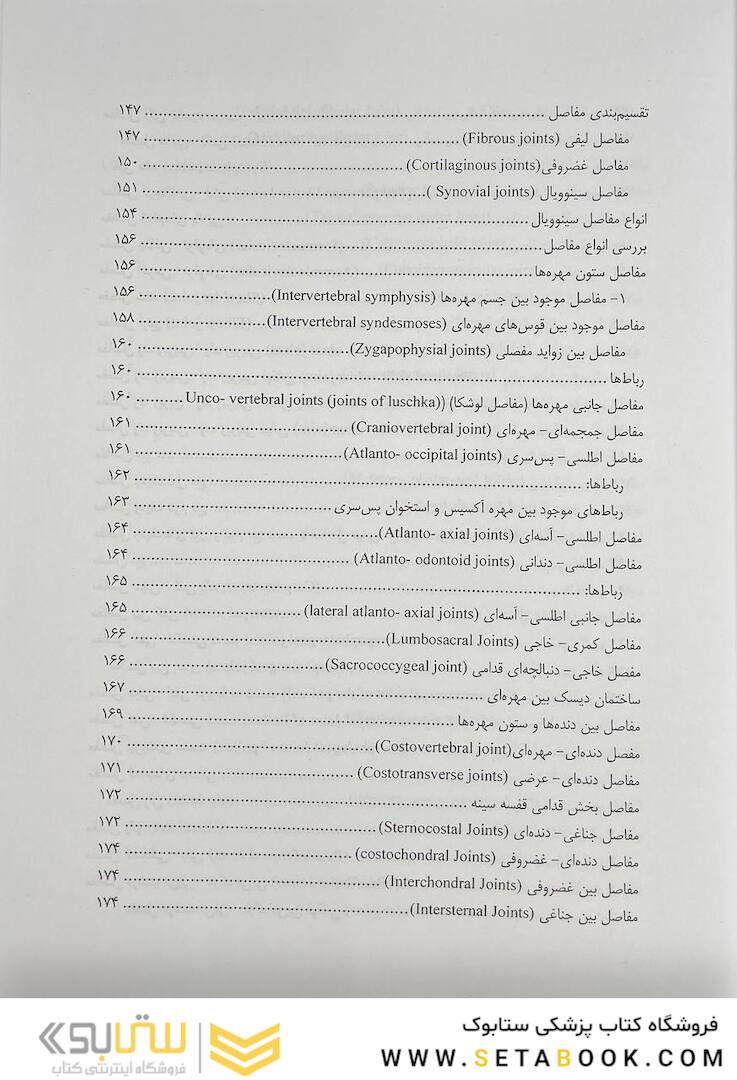 تقسیم‌بندی مفاصل ..... ۱۴۷
مفاصل لیفی (Fibrous joints) ..... ۱۴۷
مفاصل غضروفی(Cortilaginous joints) ..... ۱۵۰
مفاصل سینوویال (Synovial joints ) ..... ۱۵۱
انواع مفاصل سینوویال ..... ۱۵۴
بررسی انواع مفاصل ..... ۱۵۶
مفاصل ستون مهره‌ها ..... ۱۵۶
۱- مفاصل موجود بین جسم مهره‌ها (Intervertebral symphysis) ..... ۱۵۶
مفاصل موجود بین قوس‌های مهره‌ای (Intervertebral syndesmoses) ..... ۱۵۸
مفاصل بین زواید مفصلی (Zygapophysial joints) ..... ۱۶۰
رباط‌ها ..... ۱۶۰
مفاصل جانبی مهره‌ها (مفاصل لوشکا) (Unco- vertebral joints (joints of luschka)) ..... ۱۶۰
مفاصل جمجمه‌ای- مهره‌ای (Craniovertebral joint) ..... ۱۶۱
مفاصل اطلسی- پس‌سری (Atlanto- occipital joints) ..... ۱۶۱
رباط‌ها: ..... ۱۶۲
رباط‌های موجود بین مهره آکسیس و استخوان پس‌سری ..... ۱۶۳
مفاصل اطلسی- آسه‌ای (Atlanto- axial joints) ..... ۱۶۴
مفاصل اطلسی- دندانی (Atlanto- odontoid joints) ..... ۱۶۴
رباط‌ها: ..... ۱۶۵
مفاصل جانبی اطلسی- آسه‌ای (lateral atlanto- axial joints) ..... ۱۶۵
مفاصل کمری- خاجی (Lumbosacral Joints) ..... ۱۶۶
مفصل خاجی- دنبالچه‌ای قدامی (Sacrococcygeal joint) ..... ۱۶۶
ساختمان دیسک بین مهره‌ای ..... ۱۶۷
مفاصل بین دنده‌ها و ستون مهره‌ها ..... ۱۶۹
مفصل دنده‌ای- مهره‌ای(Costovertebral joint) ..... ۱۷۰
مفاصل دنده‌ای- عرضی (Costotransverse joints) ..... ۱۷۱
مفاصل بخش قدامی قفسه سینه ..... ۱۷۲
مفاصل جناغی- دنده‌ای (Sternocostal Joints) ..... ۱۷۲
مفاصل دنده‌ای- غضروفی (costochondral Joints) ..... ۱۷۴
مفاصل بین غضروفی (Interchondral Joints) ..... ۱۷۴
مفاصل بین جناغی (Intersternal Joints) ..... ۱۷۴
فروشگاه کتاب پزشکی ستابوک
WWW.SETABOOK.COM
ستابوک
فروشگاه اینترنتی کتاب